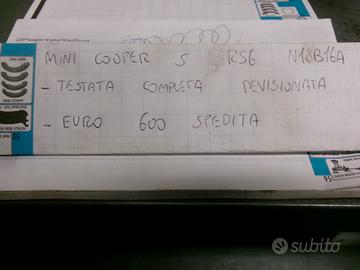 MINI COOPER S R56 N18B16A
- TESTATA COMPLETA REVISIONATA
- EURO 600 SPEDITA
subito